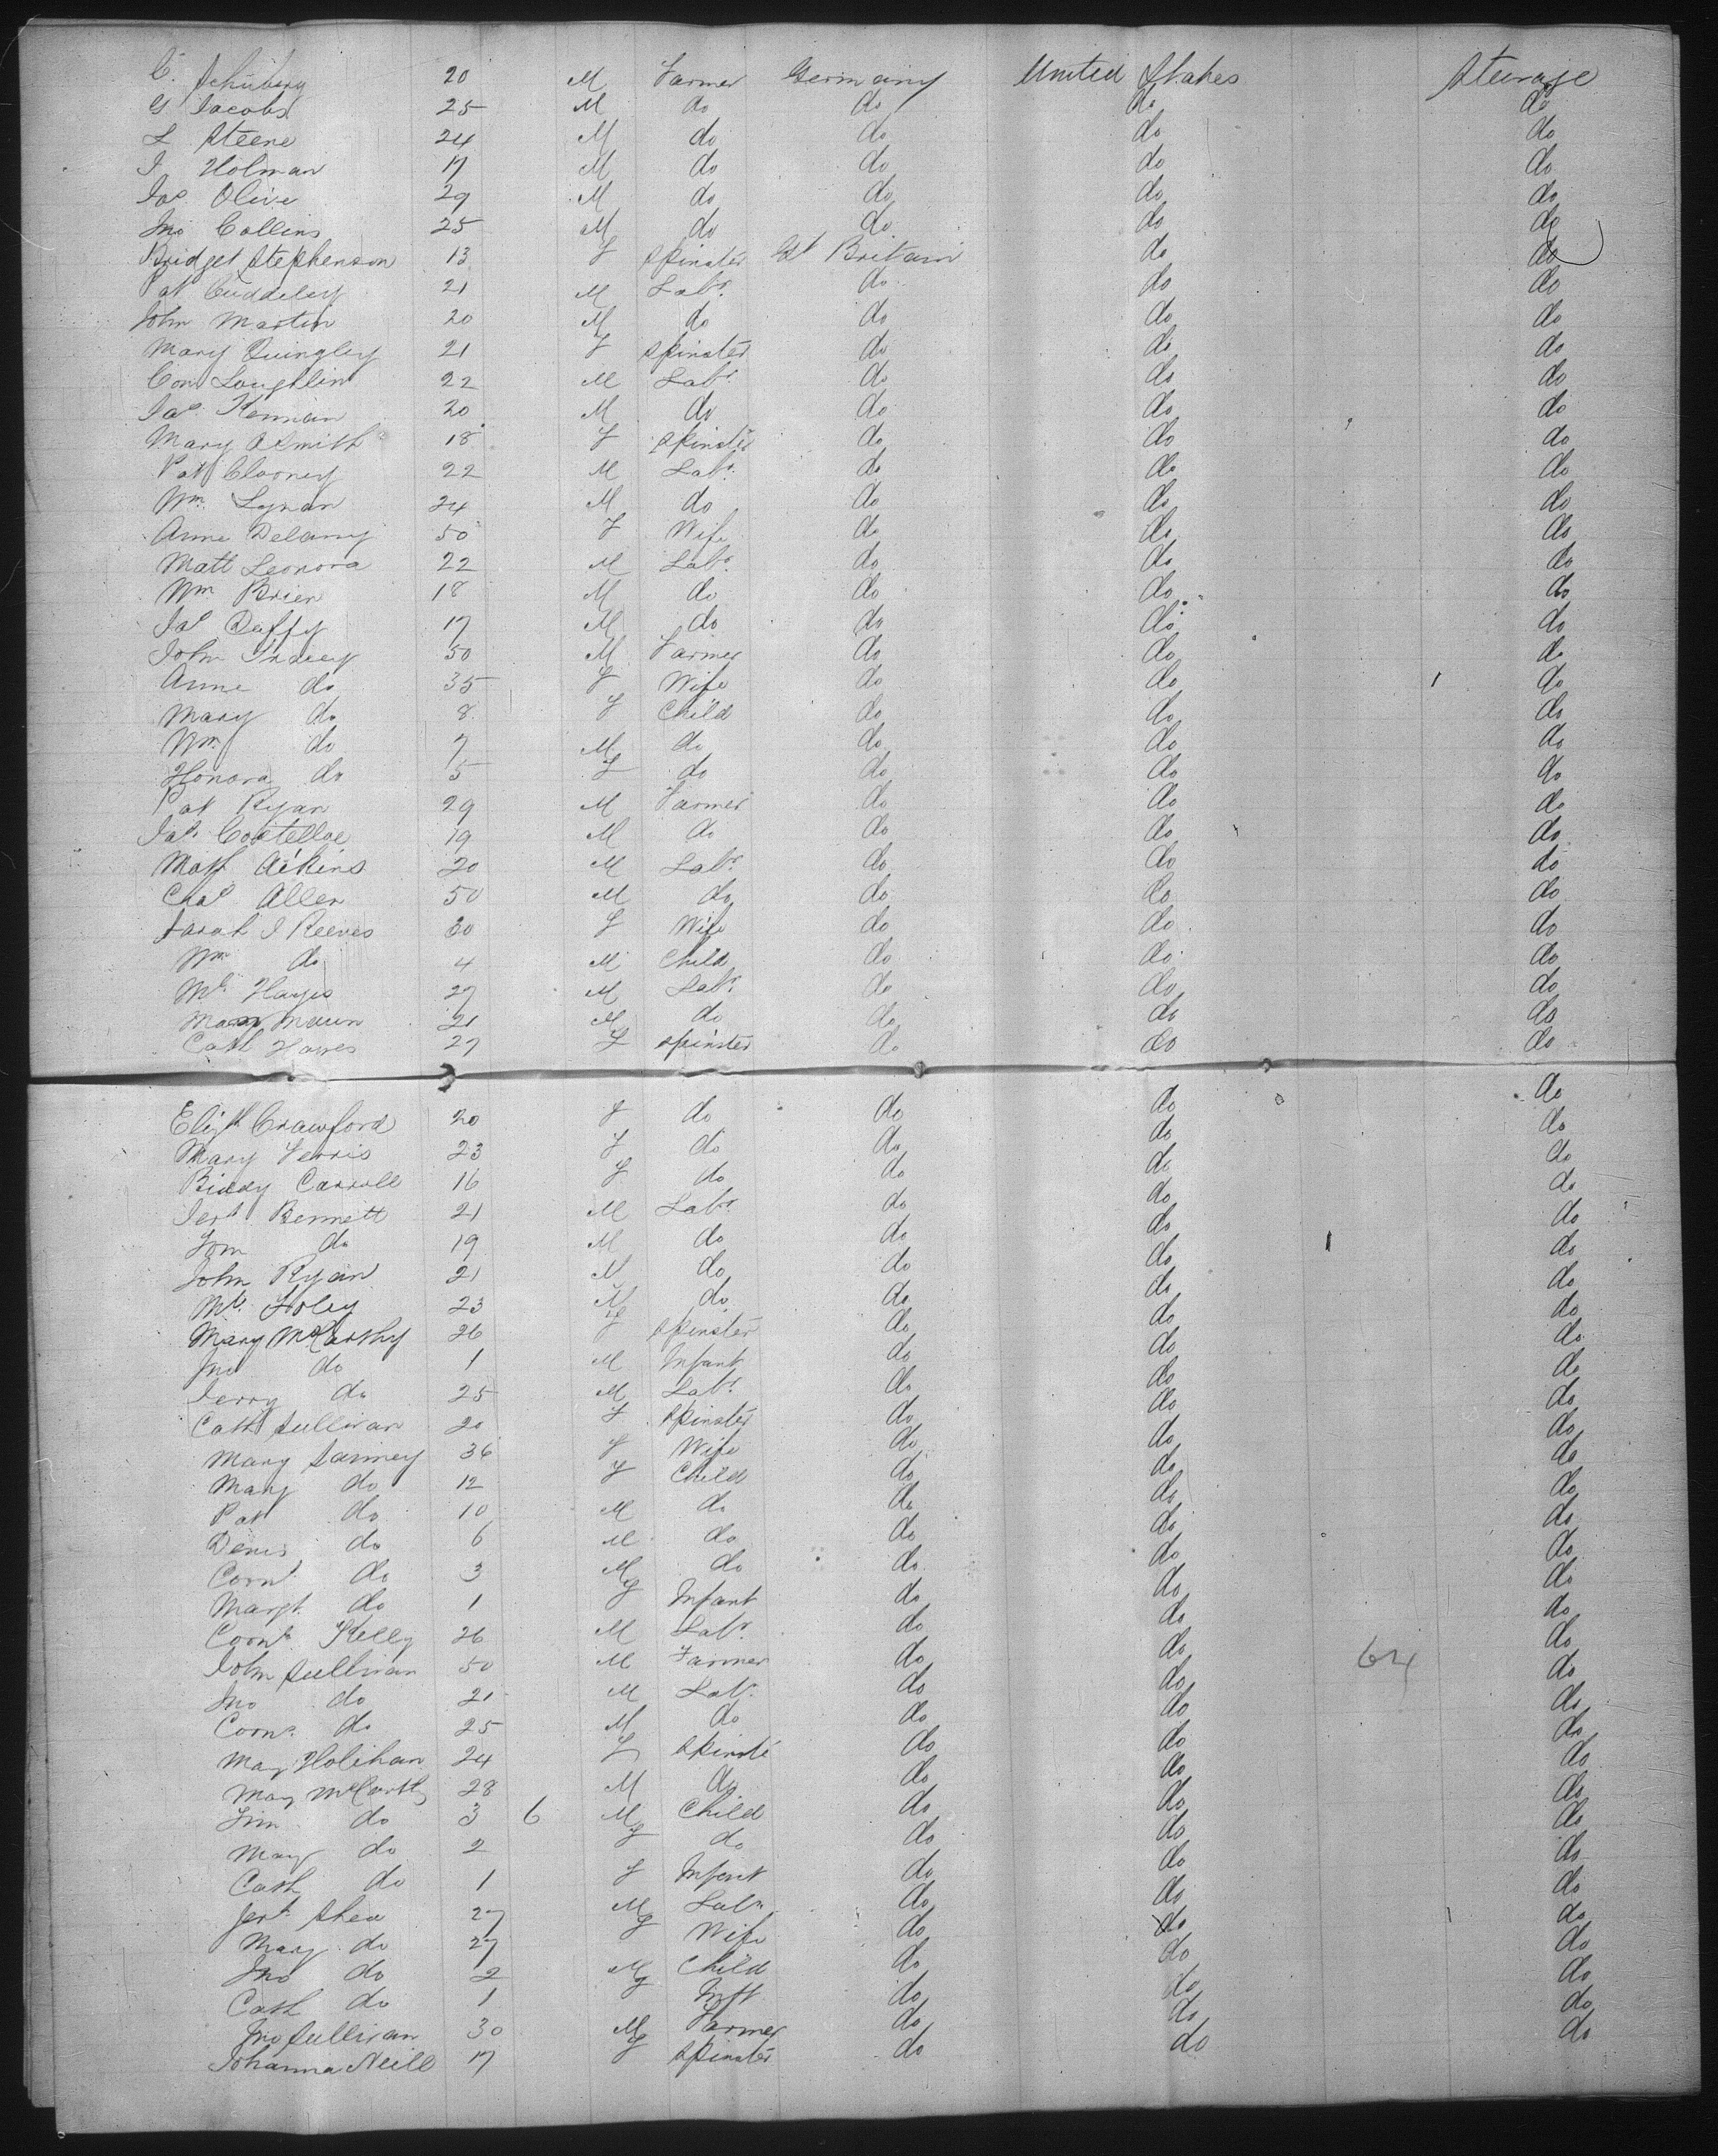 C. Schuberg 20 M Farmer Germany United States Steerage
G Jacobs 25 M do do do do
L Steene 24 M do do do do
J Holman 17 M do do do do
Jas Olive 29 M do do do do
Jno Collins 25 M do do do do
Bridget Stephenson 13 F Spinster Gt Britain do do
Pat Cuddeley 21 M Labr do do do
John Martin 20 M do do do do
Mary Quingley 21 F Spinster do do do
Con Loughlin 22 M Labr do do do
Jas Kennan 20 M do do do do
Mary A Smith 18 F Spinster do do do
Pat Clooney 22 M Labr do do do
Wm Lynan 24 M do do do do
Anne Delany 50 F Wife do do do
Matt Leonora 22 M Labr do do do
Wm Brien 18 M do do do do
Jas Duffy 17 M do do do do
John 50 M Farmer do do do
Anne do 35 F Wife do do do
Mary do 8 F Child do do do
Wm do 7 M do do do do
Honora do 5 F do do do do
Pat Ryan 29 M Farmer do do do
Jas Costelloe 19 M do do do do
Matt Aikins 20 M Labr do do do
Chas Allen 50 M do do do do
Sarah J Reeves 30 F Wife do do do
Wm do 4 M Child do do do
Ml Hayes 27 M Labr do do do
Mary Maun 21 M do do do do
Cath Hawes 27 F Spinster do do do
Elizth Crawford 20 F do do do do
Mary Ferris 23 F do do do do
Biddy Carroll 16 F do do do do
Jert Bennett 21 M Labr do do do
Tom do 19 M do do do do
John Ryan 21 M do do do do
Ml Foley 23 M do do do do
Mary McCarthy 26 F Spinster do do do
Jno do 1 M Infant do do do
Jerry do 25 M Labr do do do
Cath Sullivan 20 F Spinster do do do
Mary Sanney 36 F Wife do do do
Mary do 12 F Child do do do
Pat do 10 M do do do do
Denis do 6 M do do do do
Corns do 3 M do do do do
Margt do 1 F Infant do do do
Corns Kelly 26 M Labr do do do
John Sullivan 50 M Farmer do do 64 do
Jno do 21 M Labr do do do
Corns do 25 M do do do do
May Holihan 24 F Spinste do do do
May McCarthy 28 M do do do do
Jim do 3 6 M Child do do do
May do 2 F do do do do
Cath do 1 F Infant do do do
Jert Shea 27 M Labr do do do
Mary do 27 F Wife do do do
Jno do 2 M Child do do do
Cath do 1 F Inft do do do
Jno Sullivan 30 M Farmer do do do
Johanna Neill 17 F Spinster do do do